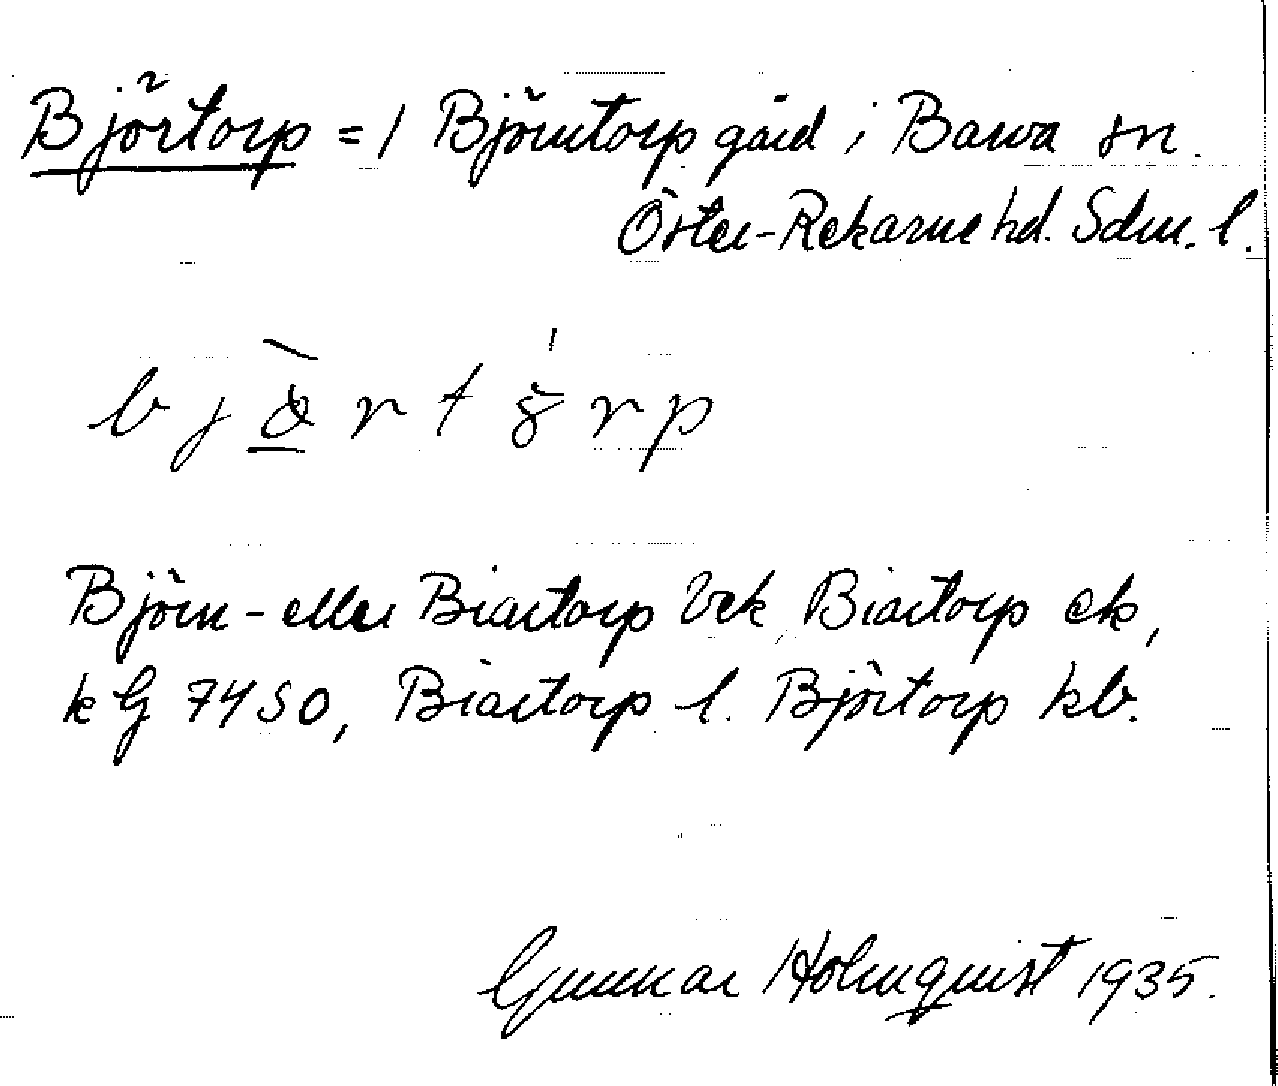 Björtorp = / Björntorp gård i Barva sn.
Öster-Rekarne hd. Sdm. l.
b j ö r t ó̈ r p
Björn- eller Biartorp Vek, Biartorp ek,
k G 7450, Biartorp l. Björtorp kb.
Gunnar Holmquist 1935.